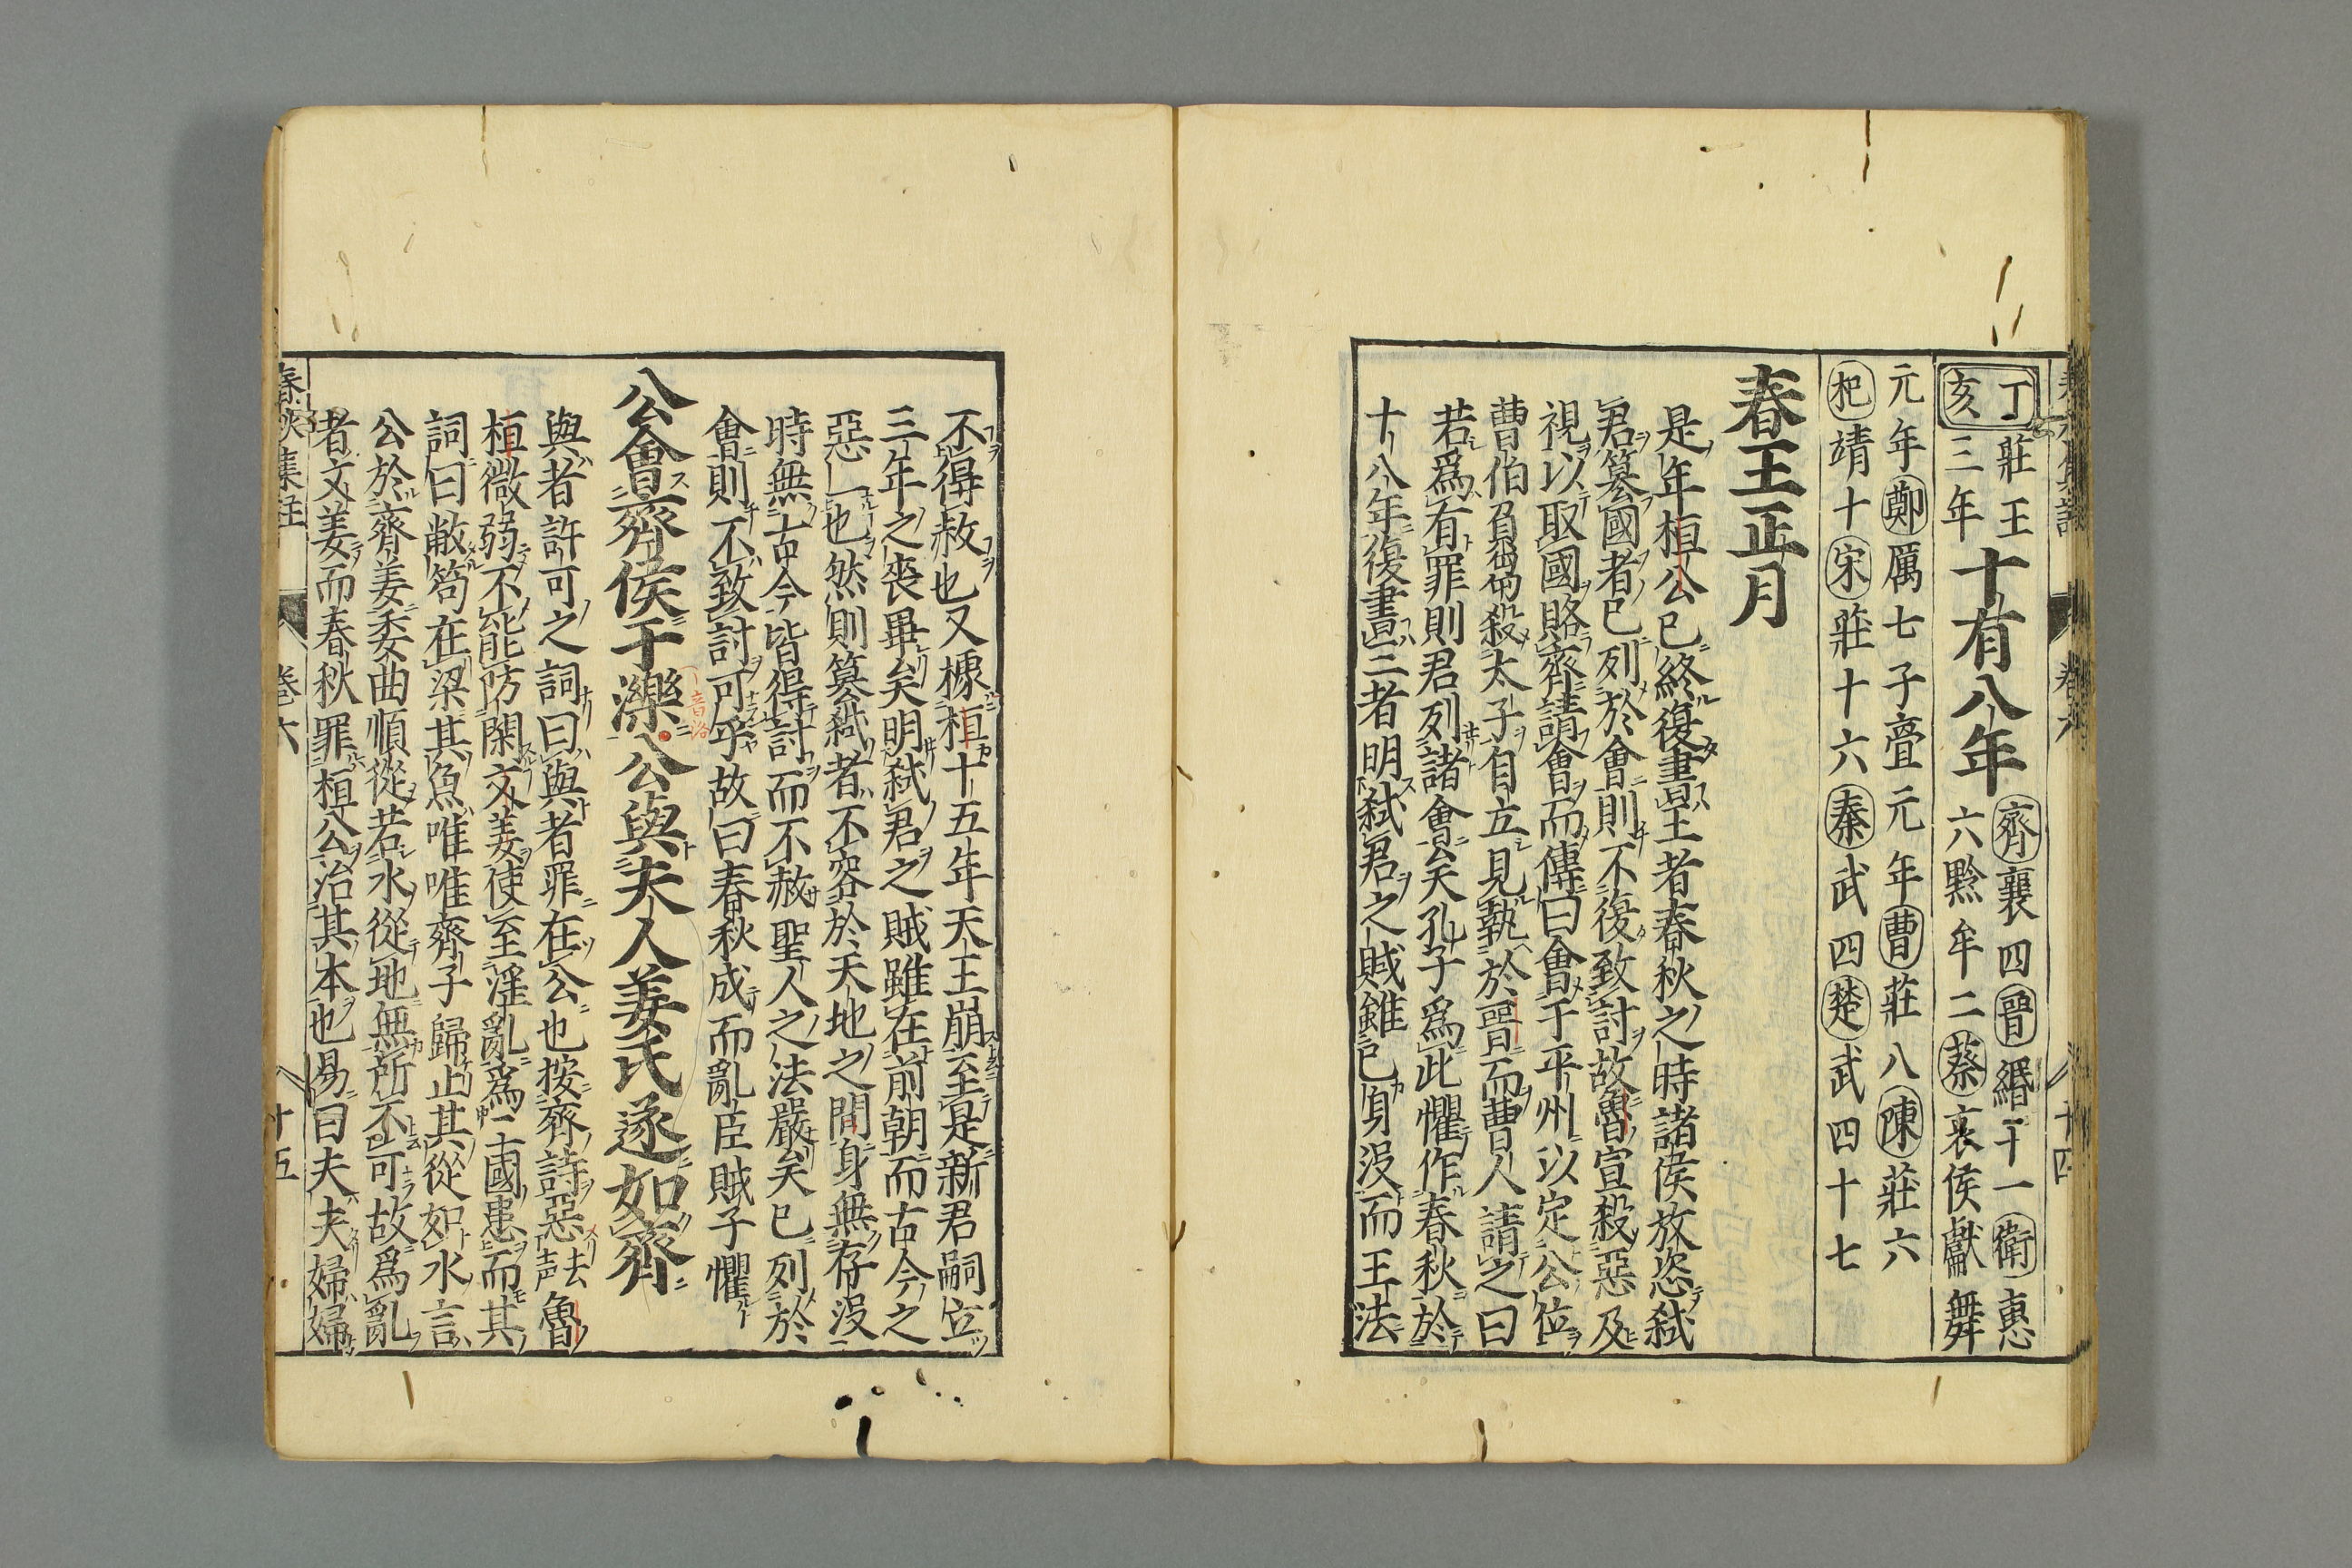 丁亥 莊王三年 十有八年 齊襄四 晉緡十一 衛惠六黔牟二 蔡哀侯獻舞
元年 鄭厲七子亹元年 曹莊八 陳莊六
杞靖十 宋莊十六 秦武四 楚武四十七
春王正月
是年桓公已終復書王者春秋之時諸侯放恣弑
君簒國者已列於會則不復致討故魯宣殺惡及
視以取國賂齊請會而傳曰會于平州以定公位
曹伯負芻殺太子自立見執於晉而曹人請之曰
若爲有罪則君列諸會矣孔子爲此懼作春秋於
十八年復書王者明弑君之賊雖已身沒而王法
不得赦也又據桓十五年天王崩至是新君嗣立
三年之喪畢矣明弑君之賊雖在前朝而古今之
惡一也然則簒弑者不容於天地之間身無存沒
時無古今皆得討而不赦聖人之法嚴矣已列於
會則不致討可乎故曰春秋成而亂臣賊子懼
公會齊侯于濼公與夫人姜氏遂如齊
音洛
與者許可之詞曰與者罪在公也按齊詩惡去声魯
桓微弱不能防閑文姜使至淫亂爲二國患而其
詞曰敝笱在梁其魚唯唯齊子歸止其從如水言
公於齊姜委曲順從若水從地無所不可故爲亂
者文姜而春秋罪桓公治其本也易曰夫夫婦婦
春秋集註 卷六 十五